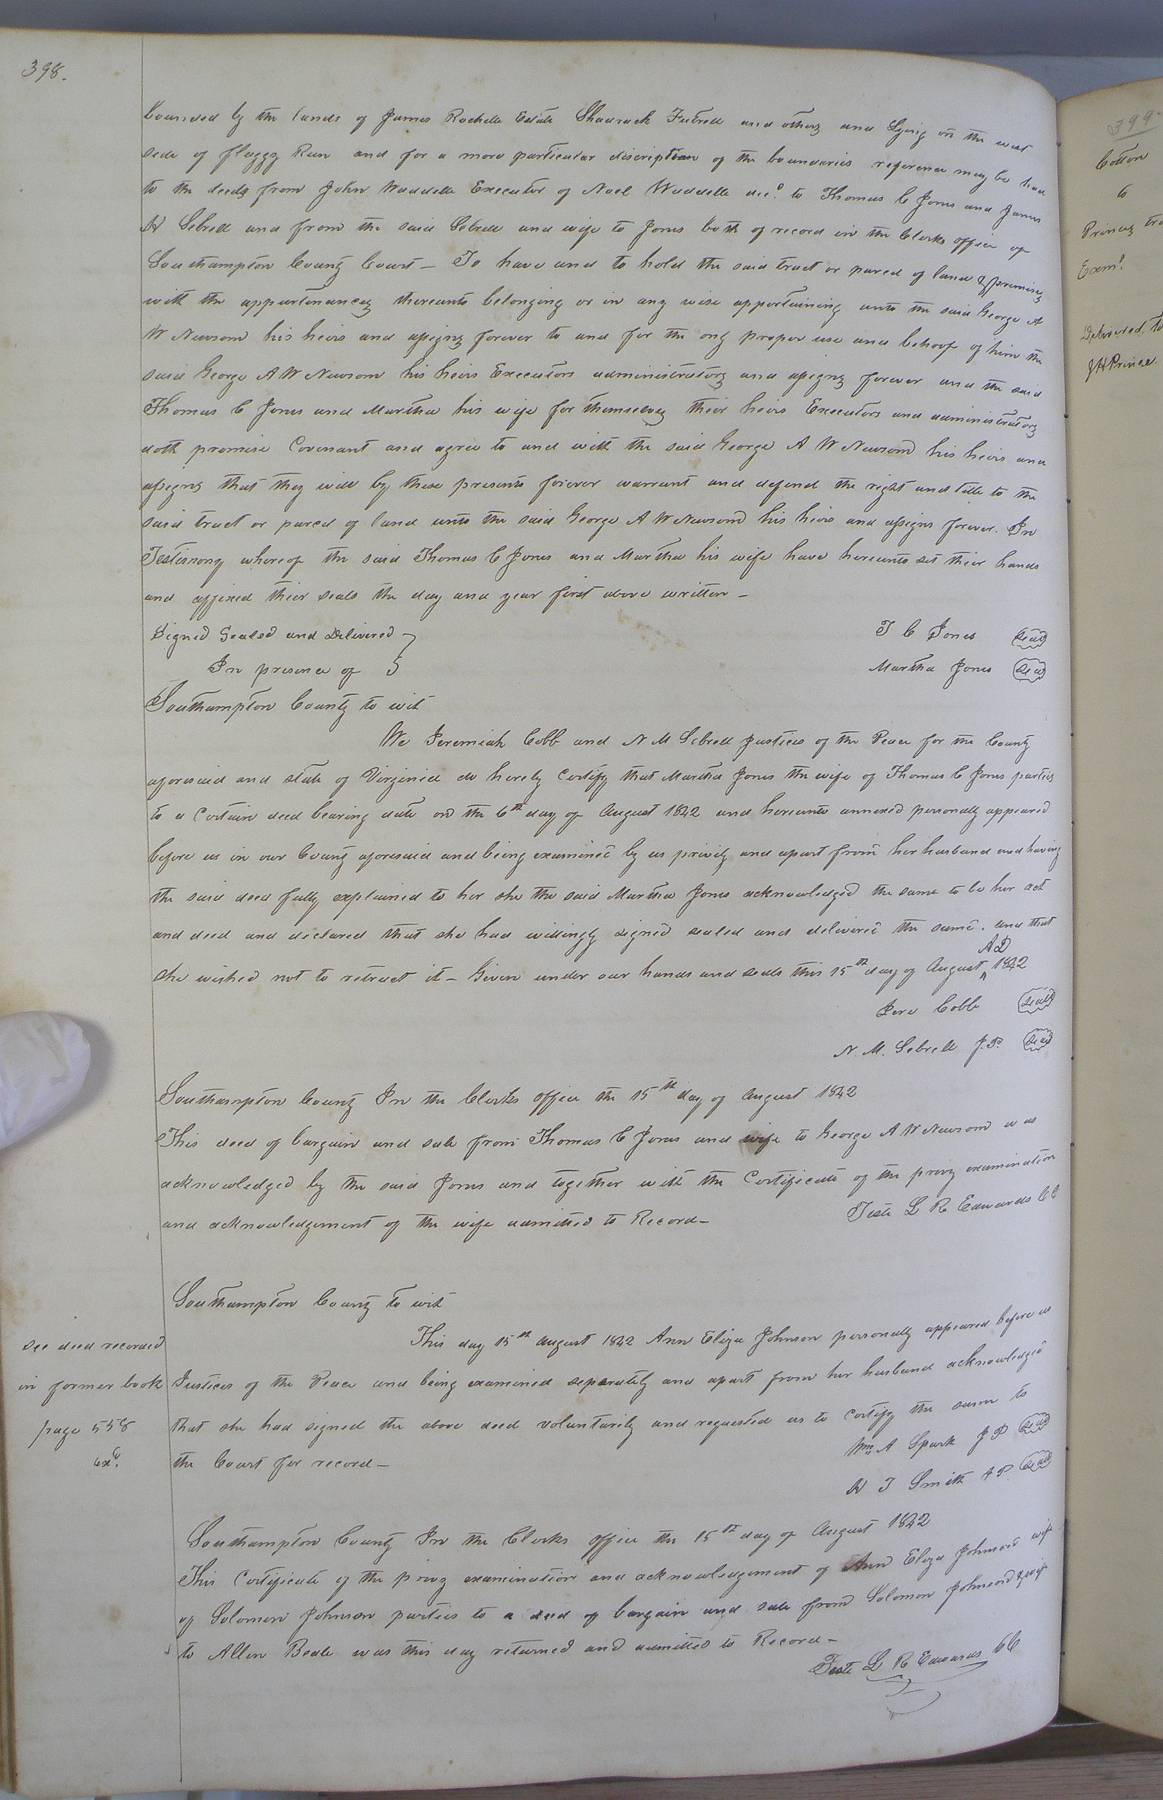 398.
bounded by the lands of James Rochelle Estate Shadrack Futrell and others and Lying on the west
side of flaggy Run and for a more particular discription of the boundaries reference may be had
to the deeds from John Waddelle Executor of Noel Waddelle decd. to Thomas C Jones and James
W Sebrell and from the said Sebrell and wife to Jones both of record in the Clerks office of
Southampton County Court – To have and to hold the said tract or parcel of land & premises
with the appurtenances thereunto belonging or in any wise appertaining unto the said George A
W Newsom his heirs and assigns forever to and for the only proper use and behoof of him the
said George A W Newsom his heirs Executors administrators and assigns forever and the said
Thomas C Jones and Martha his wife for themselves their heirs Executors and administrators
doth promise Covenant and agree to and with the said George A W Newsom his heirs and
assigns that they will by these presents forever warrant and defend the right and title to the
said tract or parcel of land unto the said George A W Newsom his heirs and assigns forever. In
Testimony whereof the said Thomas C Jones and Martha his wife have hereunto set their hands
and affixed their seals the day and year first above written –
Signed Sealed and Delivered } T C Jones (Seal)
In presence of } Martha Jones (Seal)
Southampton County to wit
We Jeremiah Cobb and N M Sebrell Justices of the Peace for the County
aforesaid and state of Virginia do hereby Certify that Martha Jones the wife of Thomas C Jones parties
to a Certain deed bearing date on the 6th day of August 1842 and hereunto annexed personally appeared
before us in our County aforesaid and being examined by us privily and apart from her husband and having
the said deed fully explained to her she the said Martha Jones acknowledged the same to be her act
and deed and declared that she had willingly signed sealed and delivered the same. and that
she wished not to retract it – Given under our hands and seals this 15th day of August AD 1842
Jere Cobb (Seal)
N. M. Sebrell J.P. (Seal)
Southampton County In the Clerks office the 15th day of August 1842
This deed of bargain and sale from Thomas C Jones and wife to George A W Newsom was
acknowledged by the said Jones and together with the Certificate of the privy examination
and acknowledgement of the wife admitted to Record –
Teste L R Edwards CC
Southampton County to wit
This day 15th August 1842 Ann Eliza Johnson personally appeared before us
Justices of the Peace and being examined seperately and apart from her husband acknowledged
that she had signed the above deed voluntarily and requested us to certify the same to
the Court for record –
Wm A Spark J P (Seal)
W J Smith J.P. (Seal)
see deed recorded
in former book
page 558
Exd.
Southampton County In the Clerks office the 15th day of August 1842
This Certificate of the privy examination and acknowledgement of Ann Eliza Johnson wife
of Solomon Johnson parties to a deed of bargain and sale from Solomon Johnson & wife
to Allen Beale was this day returned and admitted to Record –
Teste L R Edwards CC
399.
Cotton
to
Princes
Exmd.
Delivered to
J H Prince